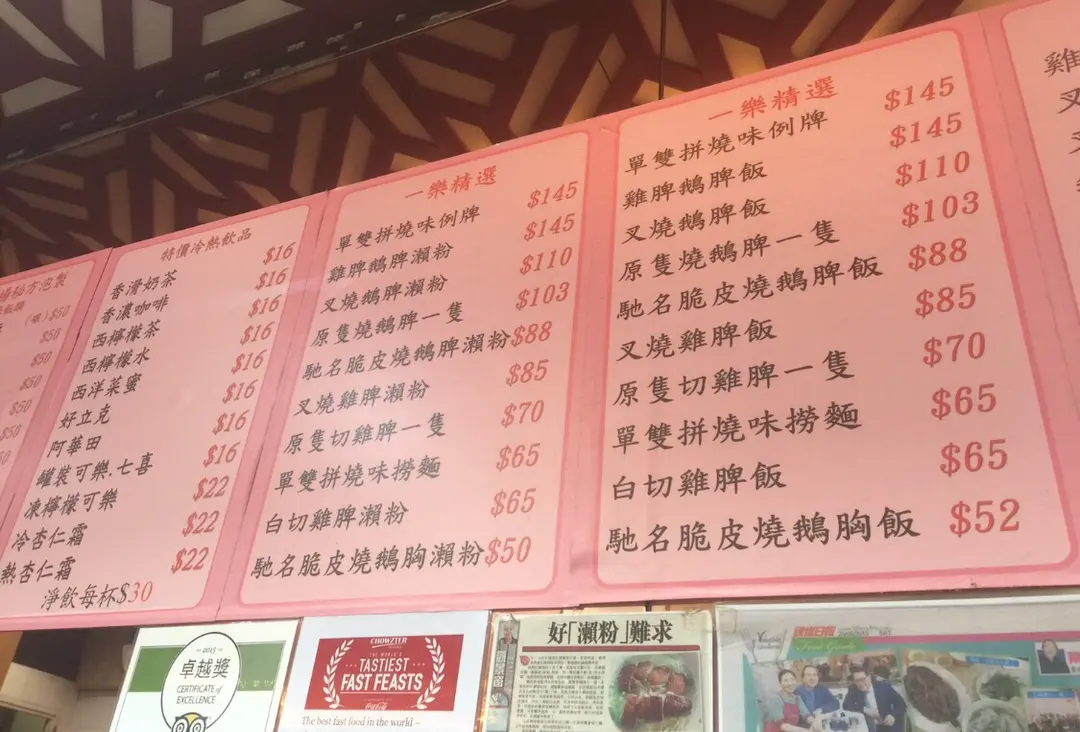 場秘方泡製
(碗)$50
$50
$50
$50
$50
$50
特價冷熱飲品
香滑奶茶 $16
香濃咖啡 $16
西檸檬茶 $16
西檸檬水 $16
西洋菜蜜 $16
好立克 $16
阿華田 $16
罐裝可樂.七喜 $16
凍檸檬可樂 $22
冷杏仁霜 $22
熱杏仁霜 $22
淨飲每杯$30
一樂精選
單雙拼燒味例牌 $145
雞脾鵝脾瀨粉 $145
叉燒鵝脾瀨粉 $110
原隻燒鵝脾一隻 $103
馳名脆皮燒鵝脾瀨粉 $88
叉燒雞脾瀨粉 $85
原隻切雞脾一隻 $70
單雙拼燒味撈麵 $65
白切雞脾瀨粉 $65
馳名脆皮燒鵝胸瀨粉 $50
一樂精選
單雙拼燒味例牌 $145
雞脾鵝脾飯 $145
叉燒鵝脾飯 $110
原隻燒鵝脾一隻 $103
馳名脆皮燒鵝脾飯 $88
叉燒雞脾飯 $85
原隻切雞脾一隻 $70
單雙拼燒味撈麵 $65
白切雞脾飯 $65
馳名脆皮燒鵝胸飯 $52
雞
叉
2015
卓越獎
CERTIFICATE of
EXCELLENCE
CHOWZTER
THE WORLD'S
TASTIEST
FAST FEASTS
Coca-Cola
The best fast food in the world –
好「瀨粉」難求
Food Guide